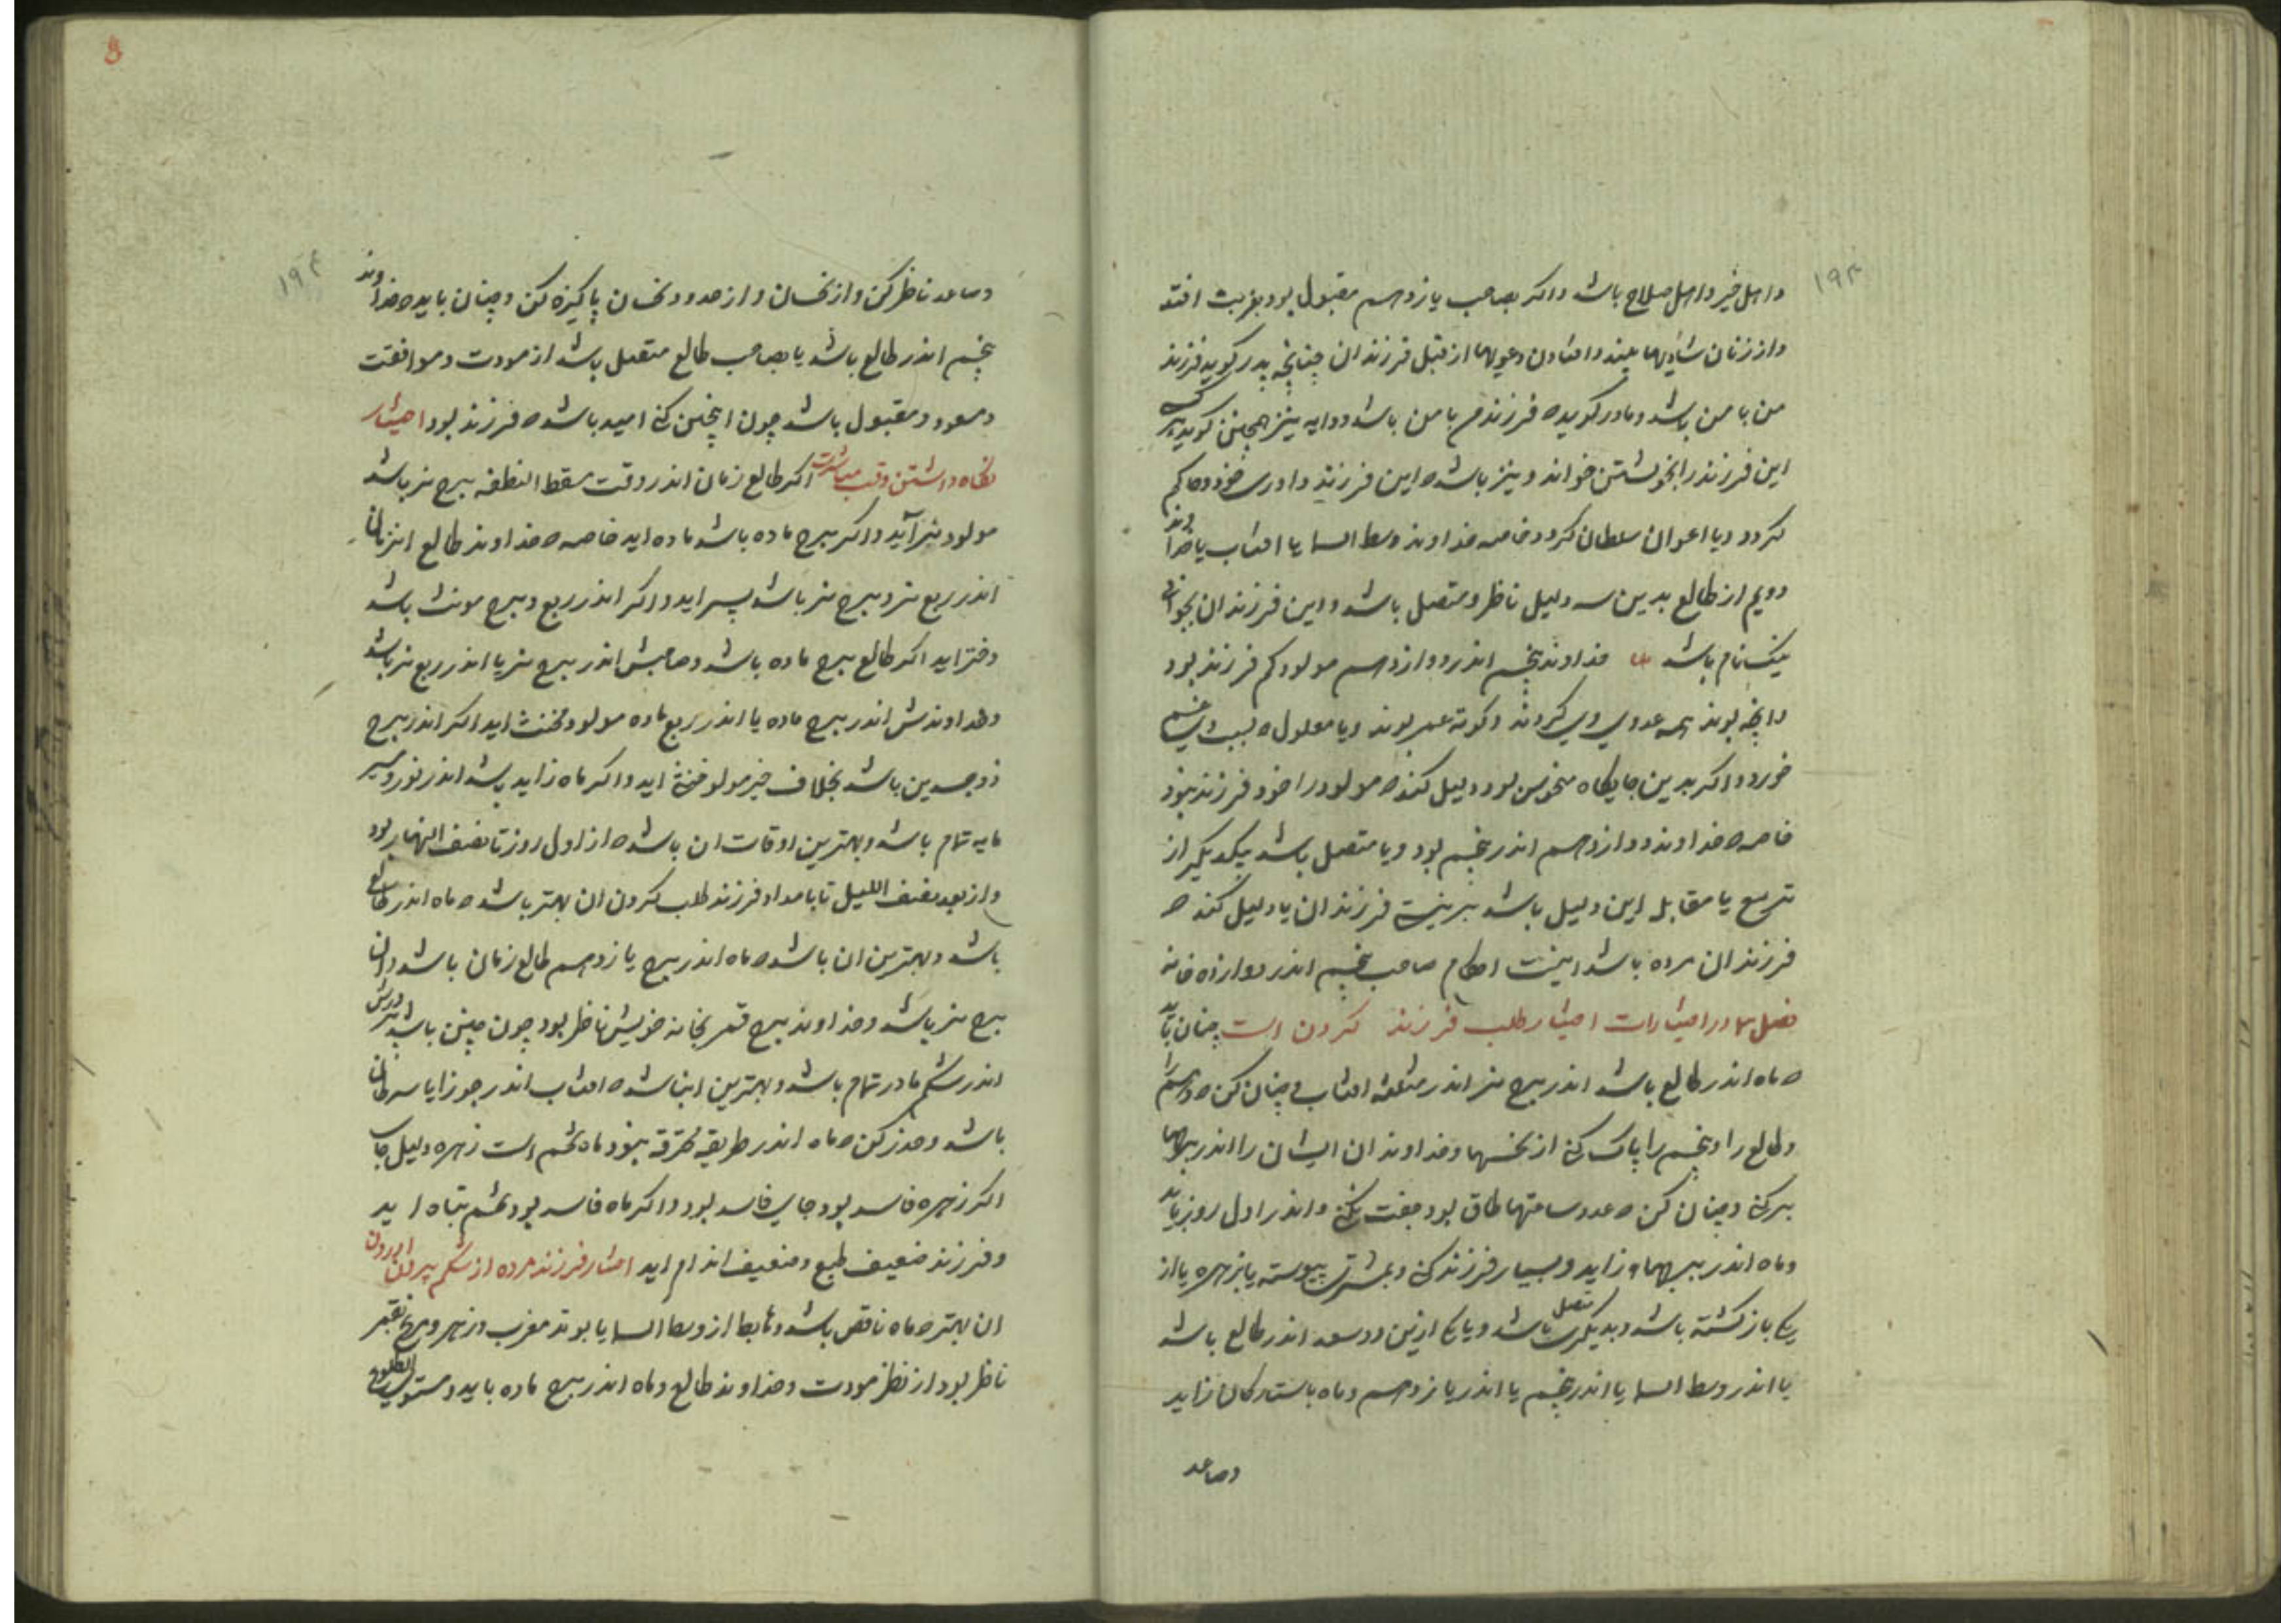 ۱۹۳
و اهل خیر و اهل صلاح باشد و اکر بصاحب یازدهم مقبول بود بغربت افتد
و از زنان شادیها بیند و افتادن دعویها از قبل فرزندان چنانچه پدر کوید فرزند
من با من باشد و مادر کوید ه فرزندم با من باشد و دایه نیز همچنین کوید
این فرزند را بخویشتن خواند و نیز باشد ه این فرزند داوری خود و حاکم
کردد و یا اعوان سلطان کردد خاصه خداوند وسط السما یا افتاب یا خداوند
دویم از طالع بدین سه دلیل ناظر و متصل باشد و این فرزندان بجوانی
نیک نام باشد خداوند پنجم اندر دوازدهم مولود کم فرزند بود
و انچه بوند همه عدوی وی کردند و کوته عمر بوند و یا معلول ه بسبب ایشان غم
خورد و اکر بدین جایکاه منحوس بود دلیل کند ه مولود را خود فرزند نبود
خاصه ه خداوند دوازدهم اندر پنجم بود و یا متصل باشد بیکدیکر از
تربیع یا مقابله این دلیل باشد بر نیست فرزندان یا دلیل کند ه
فرزندان مرده باشد اینست احکام صاحب پنجم اندر دوازده خانه
فصل در اختیارات اختیار طلب فرزند کردن است چنان باید
ه ماه اندر طالع باشد اندر برج نر اندر مثلثه افتاب و چنان کن ه دهم را
و طالع را و پنجم را پاک کنی از نحسها و خداوندان ایشان را اندر برجها
بر کنی و چنان کن ه عدد ساعتها طاق بود جفت نکنی و اندر اول روز باید
و ماه اندر برجهاء زاید و بسیار فرزند کنی و بمشتری پیوسته یا بزهره یا از
یکی بازکشته باشد و بدیکری متصل باشد و یا یکی ازین دو سعد اندر طالع باشد
یا اندر وسط السما یا اندر پنجم یا اندر یازدهم و ماه باستارکان زاید
وصاعد
۱۹۴
وصاعد ناظر کن و از نحسان و از حدود نحسان پاکیزه کن و چنان باید ه خداوند
پنجم اندر طالع باشد یا بصاحب طالع متصل باشد از مودت و موافقت
و مسعود و مقبول باشد چون اینچنین کنی امید باشد ه فرزند بود اختیار
نکاه داشتن وقت مباشرت اکر طالع زمان اندر وقت مسقط النطفه برج نر باشد
مولود نر آید و اکر برج ماده باشد ماده اید خاصه ه خداوند طالع
اندر ربع نر و برج نر باشد پسر اید و اکر اندر ربع و برج مونث باشد
دختر اید اکر طالع برج ماده باشد و صاحبش اندر برج نر یا اندر ربع نر باشد
و خداوندش اندر برج ماده یا اندر ربع ماده مولود مخنث اید اکر اندر برج
ذوجسدین باشد بخلاف خیز مولود خنثی اید و اکر ماه زاید باشد اندر نور و سیر
مایه تمام باشد و بهترین اوقات ان باشد ه از اول روز تا نصف النهار بود
و از بعد نصف اللیل تا بامداد فرزند طلب کردن ان بهتر باشد ه ماه اندر طالع
باشد و بهترین ان باشد ه ماه اندر برج یازدهم طالع زمان باشد و ان
برج نر باشد و خداوند برج قمر بخانه خویش ناظر بود چون چنین باشد پرورش
اندر شکم مادر تمام باشد و بهترین ان باشد ه افتاب اندر جوزا یا سرطان
باشد و حذر کن ه ماه اندر طریقه محترقه نبود ماه تخم است زهره دلیل جای
اکر زهره فاسد بود جای فاسد بود و اکر ماه فاسد بود تخم تباه اید
و فرزند ضعیف طبع و ضعیف اندام اید اختیار فرزند مرده از شکم بیرون اوردن
ان بهتر ه ماه ناقص باشد و هابط از وسط السما یا بوتد مغرب و زهره و مریخ بقمر
ناظر بود از نظر مودت و خداوند طالع و ماه اندر برج ماده باید و مستوی الطلوع